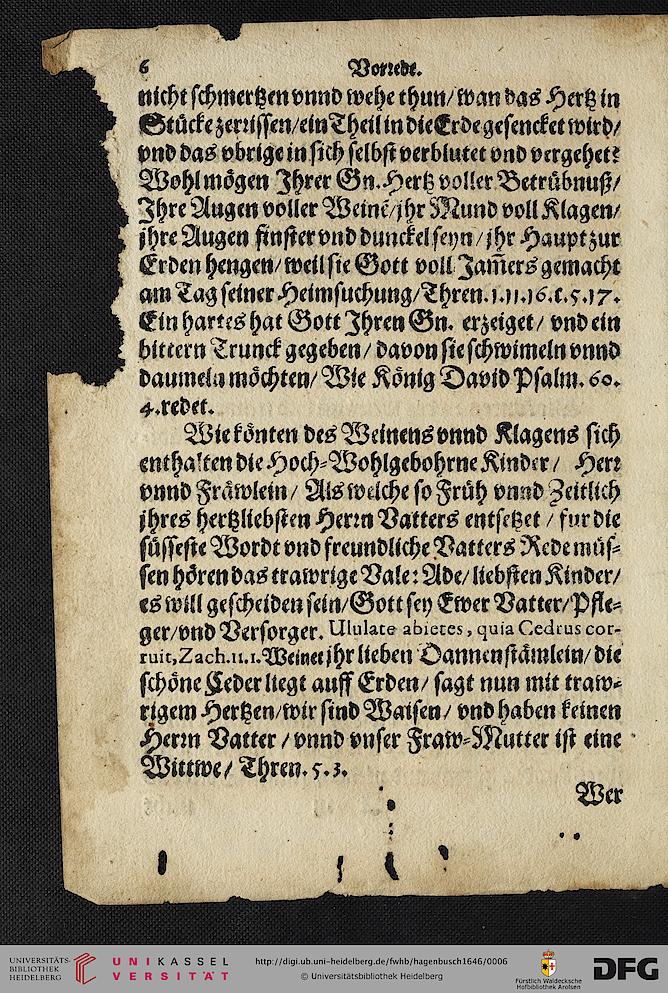 6 Vorrede.
nicht schmertzen vnnd wehe thun/ wan das Hertz in
Stücke zerrissen/ ein Theil in die Erde gesencket wird/
vnd das vbrige in sich selbst verblutet vnd vergehet?
Wohl mögen Ihrer Gn. Hertz voller Betrübnuß/
Ihre Augen voller Weinē/ jhr Mund voll Klagen/
jhre Augen finster vnd dunckel seyn/ jhr Haupt zur
Erden hengen/ weil sie Gott voll Jam̃ers gemacht
am Tag seiner Heimsuchung/ Thren. 1. 11. 16. c. 5. 17.
Ein hartes hat Gott Ihren Gn. erzeiget/ vnd ein
bittern Trunck gegeben/ davon sie schwimeln vnnd
daumeln möchten/ Wie König David Psalm. 60.
4. redet.
Wie könten des Weinens vnnd Klagens sich
enthalten die Hoch-Wohlgebohrne Kinder/ Herr
vnnd Fräwlein/ Als welche so Früh vnnd Zeitlich
jhres hertzliebsten Herrn Vatters entsetzet / fur die
süsseste Wordt vnd freundliche Vatters Rede müs-
sen hören das trawrige Vale: Ade/ liebsten Kinder/
es will gescheiden sein/ Gott sey Ewer Vatter/ Pfle-
ger/ vnd Versorger. Ululate abietes, quia Cedrus cor-
ruit, Zach. 11. 1. Weinet jhr lieben Dannenstämlein/ die
schöne Ceder liegt auff Erden/ sagt nun mit traw-
rigem Hertzen/ wir sind Waisen/ vnd haben keinen
Herrn Vatter / vnnd vnser Fraw-Mutter ist eine
Wittwe/ Thren. 5. 3.
Wer
UNIVERSITÄTS-
BIBLIOTHEK
HEIDELBERG
UNIKASSEL
VERSITÄT
http://digi.ub.uni-heidelberg.de/fwhb/hagenbusch1646/0006
© Universitätsbibliothek Heidelberg
Fürstlich Waldecksche
Hofbibliothek Arolsen
DFG